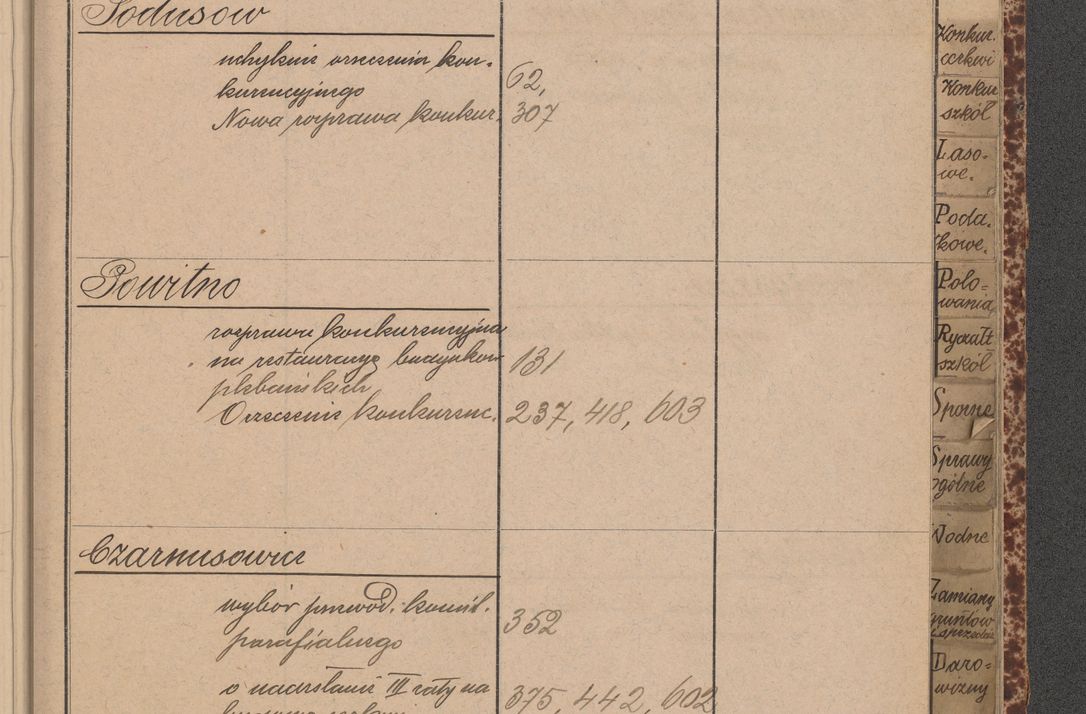 Podusów
uchylenie orzeczenia kon-
kurencyjnego 62,
Nowa rozprawa konkur. 307
Powitno
rozprawa konkurencyjna
na restauracyę budynków 131
plebańskich
Orzeczenie konkurenc. 237, 418, 603
Czarnuszowice
wybór przewod. komit. 352
parafialnego
o nadesłanie III raty na 375, 442, 602
Konkur.
cerkwi
Konkur
szkół
Laso-
we.
Poda-
tkowe.
Polo-
wania
Ryczałt
szkół
Sporne
Sprawy
ogólne
Wodne
Zamiany
gruntów
i sprzedaże
Daro-
wizny